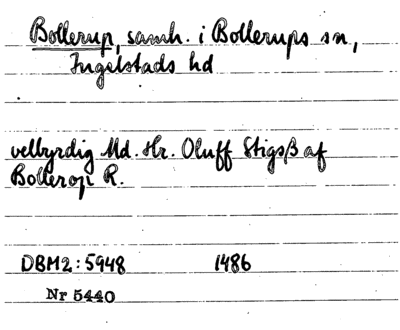 Bollerup, samh. i Bollerups sn,
Ingelstads hd
velbyrdig Md. Hr. Oluff Stigsß af
Bollerop R.
DBM2:5948 1486
Nr 5440